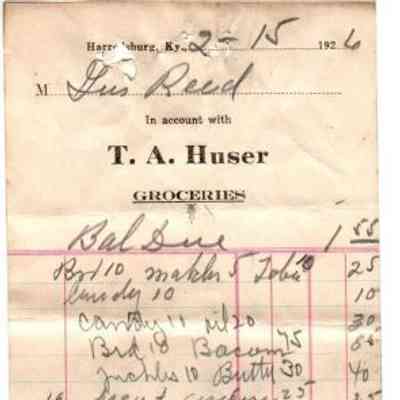 Harrodsburg, Ky., 2-15 1926
M Gus Reed
In account with
T. A. Huser
GROCERIES
Bal Due 1 55
Brd 10 5 Toba 10 25
Candy 10 10
Candy 11 oil 20 30
Brd 10 Bacon 75
10 Butty 30 40
25 25